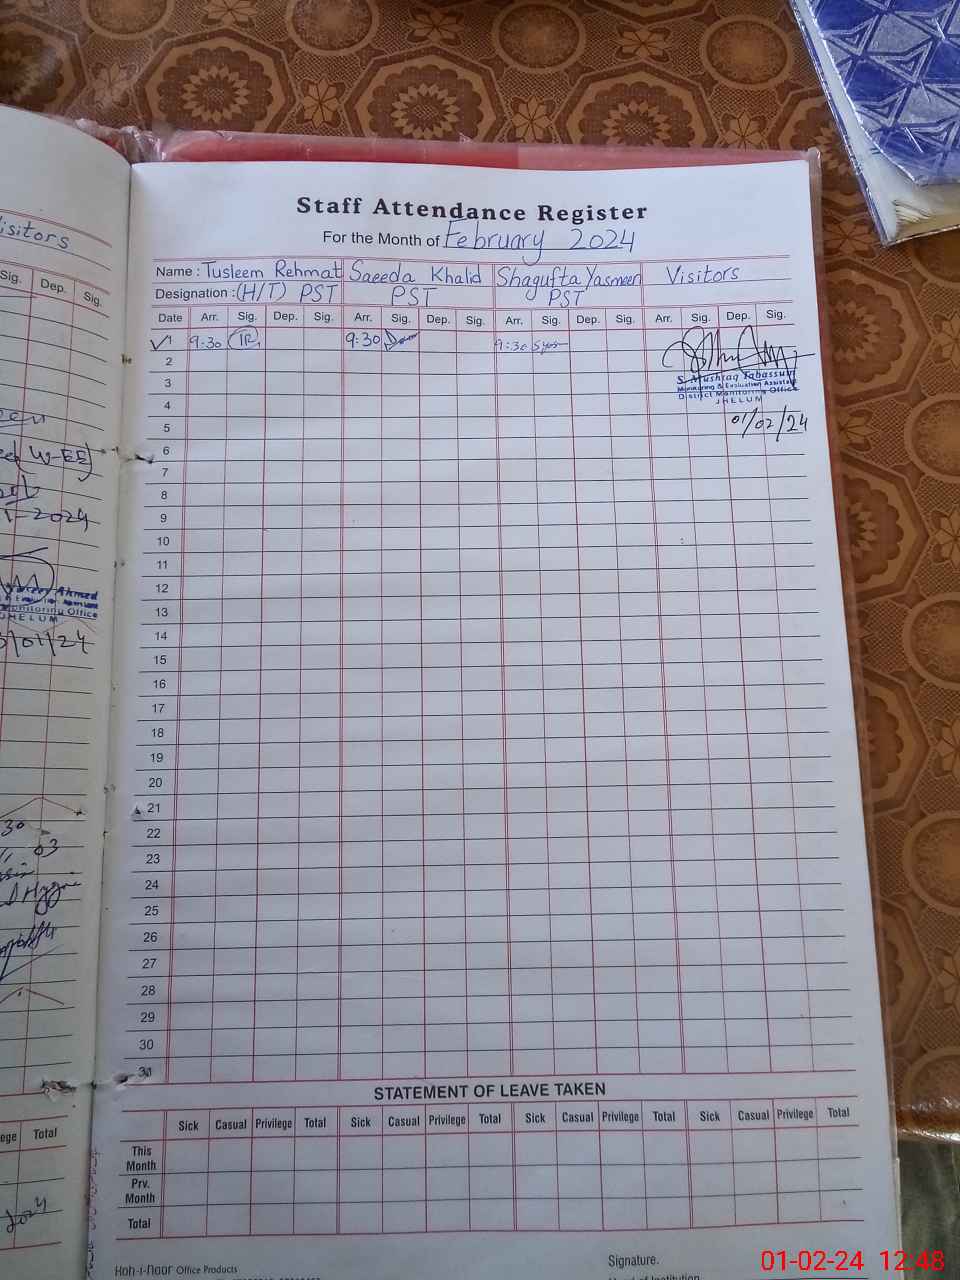 Staff Attendance Register
For the Month of February 2024
Name : Tusleem Rehmat Saeeda Khalid Shagufta Yasmeen Visitors
Designation : (H/T) PST PST PST
Date Arr. Sig. Dep. Sig. Arr. Sig. Dep. Sig. Arr. Sig. Dep. Sig. Arr. Sig. Dep. Sig.
1 9:30 TR 9:30 9:30
2
3
4
5
6
7
8
9
10
11
12
13
14
15
16
17
18
19
20
21
22
23
24
25
26
27
28
29
30
31
S. Mushtaq Tabassum
Monitoring & Evaluation Assistant
District Monitoring Office
JHELUM
01/02/24
STATEMENT OF LEAVE TAKEN
Sick Casual Privilege Total Sick Casual Privilege Total Sick Casual Privilege Total Sick Casual Privilege Total
This Month
Prv. Month
Total
Koh-i-Noor Office Products
Signature.
isitors
Sig. Dep. Sig.
2024
Ahmed
Monitoring Office
JHELUM
/01/24
30
03
ege Total
01-02-24 12:48